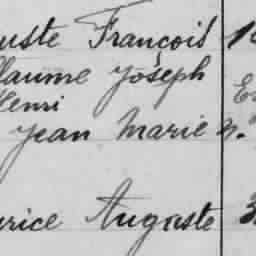 uste François
llaume Joseph
Henri
Jean Marie N.
urice Auguste